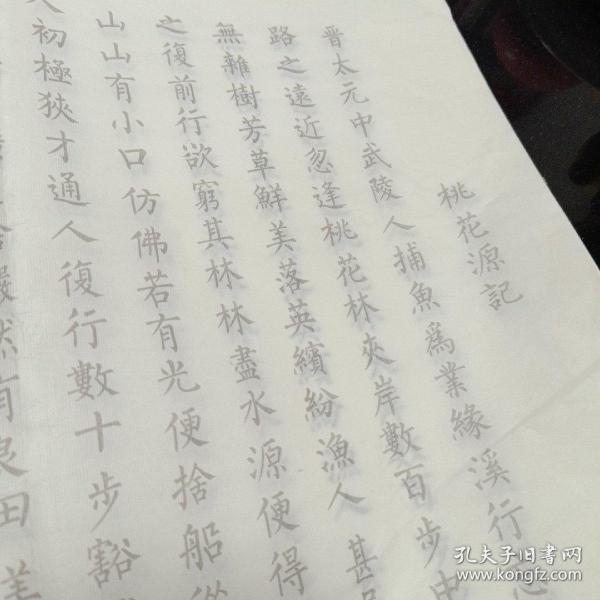 桃花源記
晉太元中武陵人捕魚爲業緣溪行
路之遠近忽逢桃花林夾岸數百步中
無雜樹芳草鮮美落英繽紛漁人甚
之復前行欲窮其林林盡水源便得
山山有小口仿佛若有光便捨船從
初極狹才通人復行數十步豁
舍儼然有良田美
孔夫子旧书网
www.kongfz.com